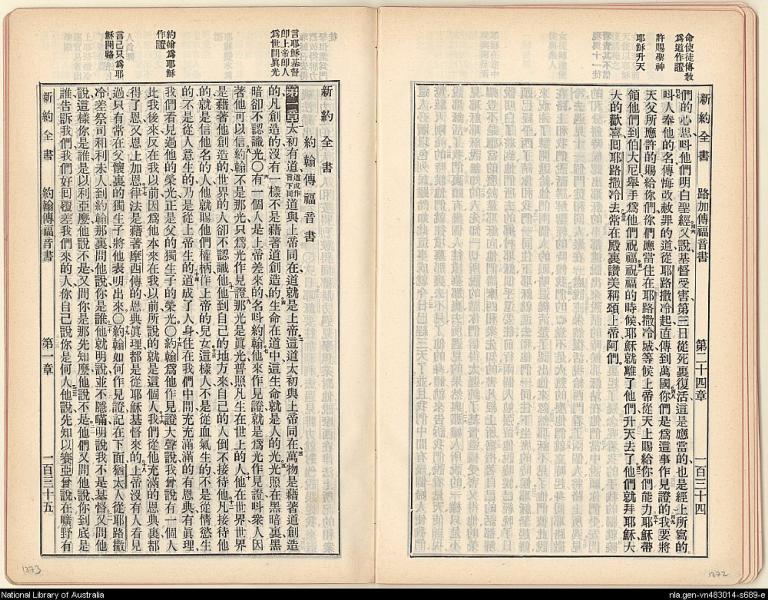 命使徒傳教
爲道作證
許賜聖神
耶穌升天
新約全書 路加傳福音書 第二十四章 一百三十四
們的心思叫他們明白聖經又說基督受害第三日從死裏復活這是應當的也是經上所寫的
叫人奉他的名傳悔改赦罪的道從耶路撒冷起直傳到萬國你們是爲這事作見證的我要將
天父所應許的賜給你們你們應當住在耶路撒冷城等候上帝從天上賜給你們能力耶穌帶
領他們到伯大尼舉手爲他們祝福祝福的時候耶穌就離了他們升天去了他們就拜耶穌大
大的歡喜回耶路撒冷去常在殿裏讚美稱頌上帝阿們
言耶穌基督
即上帝即人
爲世間眞光
約翰爲耶穌
作證
言己只爲耶
穌開路
新約全書
約翰傳福音書
第一章 太初有道道或作言下同道與上帝同在道就是上帝這道太初與上帝同在萬物是藉著道創造
的凡創造的沒有一樣不是藉著道創造的生命在道中這生命就是人的光光照在黑暗裏黑
暗卻不認識光〇有一個人是上帝差來的名叫約翰他來作見證就是爲光作見證叫衆人因
著他可以信約翰不是那光只爲光作見證那光是眞光普照凡生在世上的人他在世界世界
是藉著他創造的世界的人卻不認識他他到自己的地方來自己的人倒不接待他凡接待他
的就是信他名的人他就賜他們權柄作上帝的兒女這樣人不是從血氣生的不是從情慾生
的不是從人意生的乃是從上帝生的道成了人身住在我們中間充充滿滿的有恩典有眞理
我們看見過他的榮光正是父的獨生子的榮光〇約翰爲他作見證大聲說我曾說有一個人
比我後來反在我以前因爲他本來在我以前所說的就是這個人我們從他充滿的恩典裏都
得了恩又恩上加恩律法是藉著摩西傳的恩典眞理都是從耶穌基督來的上帝沒有人看見
過只有常在父懷裏的獨生子將他表明出來〇約翰如何作見證記在下面猶太人從耶路撒
冷差祭司和利未人到約翰那裏問他說你是誰他就明說並不隱瞞明說我不是基督又問他
說這樣你是誰是以利亞麼他說不是又問你是那先知麼他說不是他們又問他說你到底是
誰告訴我們我們好回覆差我們來的人你自己說你是何人他說先知以賽亞曾說在曠野有
新約全書 約翰傳福音書 第一章 一百三十五
1273
1272
National Library of Australia
nla.gen-vn483014-s689-e